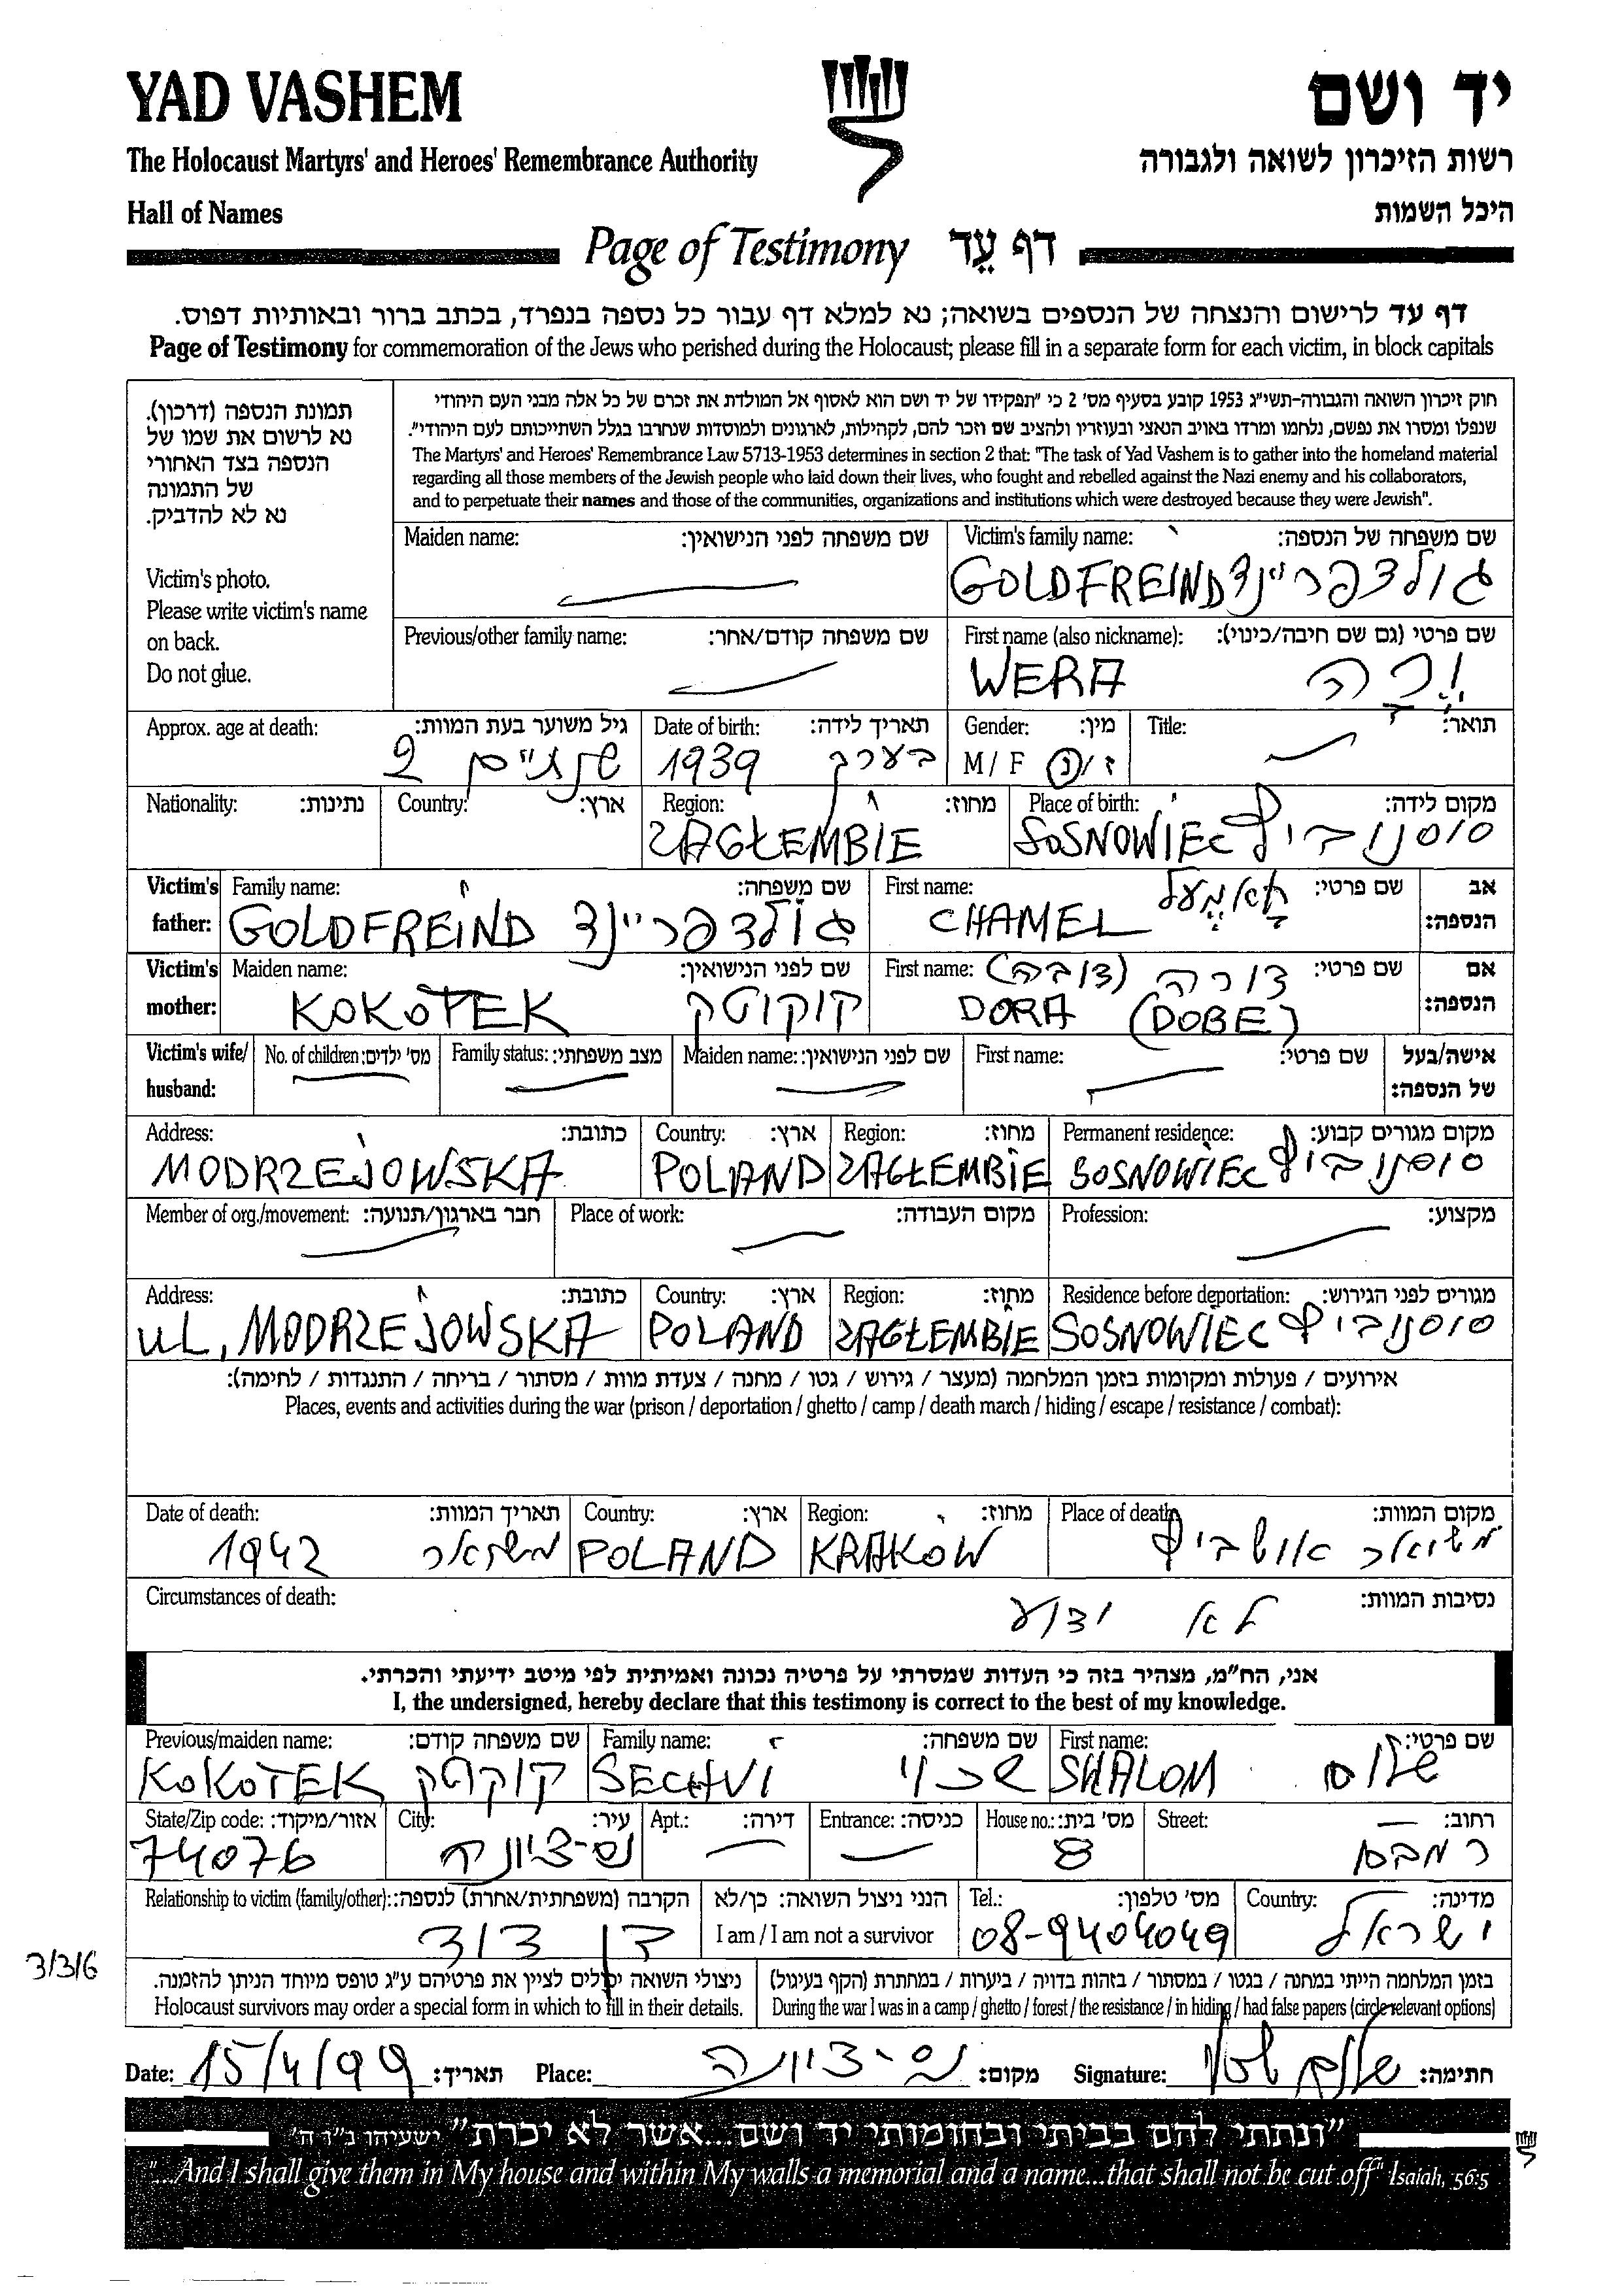 YAD VASHEM
יד ושם
The Holocaust Martyrs' and Heroes' Remembrance Authority
רשות הזיכרון לשואה ולגבורה
Hall of Names
היכל השמות
Page of Testimony דף עֵד
דף עד לרישום והנצחה של הנספים בשואה; נא למלא דף עבור כל נספה בנפרד, בכתב ברור ובאותיות דפוס.
Page of Testimony for commemoration of the Jews who perished during the Holocaust; please fill in a separate form for each victim, in block capitals
תמונת הנספה (דרכון).
נא לרשום את שמו של
הנספה בצד האחורי
של התמונה
נא לא להדביק.
Victim's photo.
Please write victim's name
on back.
Do not glue.
חוק זיכרון השואה והגבורה-תשי"ג 1953 קובע בסעיף מס' 2 כי "תפקידו של יד ושם הוא לאסוף אל המולדת את זכרם של כל אלה מבני העם היהודי
שנפלו ומסרו את נפשם, נלחמו ומרדו באויב הנאצי ובעוזריו ולהציב שם וזכר להם, לקהילות, לארגונים ולמוסדות שנחרבו בגלל השתייכותם לעם היהודי".
The Martyrs' and Heroes' Remembrance Law 5713-1953 determines in section 2 that: "The task of Yad Vashem is to gather into the homeland material
regarding all those members of the Jewish people who laid down their lives, who fought and rebelled against the Nazi enemy and his collaborators,
and to perpetuate their names and those of the communities, organizations and institutions which were destroyed because they were Jewish".
Maiden name: שם משפחה לפני הנישואין:
Victim's family name: שם משפחה של הנספה:
GOLDFREIND גולדפריינד
Previous/other family name: שם משפחה קודם/אחר:
First name (also nickname): שם פרטי (גם שם חיבה/כינוי):
WERA וֶרָה
Approx. age at death: גיל משוער בעת המוות:
2 שנתיים
Date of birth: תאריך לידה:
1939 בערך
Gender: מין:
M / F ז / נ
Title: תואר:
Nationality: נתינות:
Country: ארץ:
Region: מחוז:
ZAGŁEMBIE
Place of birth: מקום לידה:
SOSNOWIEC סוסנוביץ
Victim's father: Family name: שם משפחה:
GOLDFREIND גולדפריינד
First name: שם פרטי:
CHAMEL חאמעל
אב הנספה:
Victim's mother: Maiden name: שם לפני הנישואין:
KOKOTEK קוקוטק
First name: שם פרטי:
דורה (דובה)
DORA (DOBE)
אם הנספה:
Victim's wife/ husband: No. of children: מס' ילדים:
Family status: מצב משפחתי:
Maiden name: שם לפני הנישואין:
First name: שם פרטי:
אישה/בעל של הנספה:
Address: כתובת:
MODRZEJOWSKA
Country: ארץ:
POLAND
Region: מחוז:
ZAGŁEMBIE
Permanent residence: מקום מגורים קבוע:
SOSNOWIEC סוסנוביץ
Member of org./movement: חבר בארגון/תנועה:
Place of work: מקום העבודה:
Profession: מקצוע:
Address: כתובת:
UL, MODRZEJOWSKA
Country: ארץ:
POLAND
Region: מחוז:
ZAGŁEMBIE
Residence before deportation: מגורים לפני הגירוש:
SOSNOWIEC סוסנוביץ
אירועים / פעולות ומקומות בזמן המלחמה (מעצר / גירוש / גטו / מחנה / צעדת מוות / מסתור / בריחה / התנגדות / לחימה):
Places, events and activities during the war (prison / deportation / ghetto / camp / death march / hiding / escape / resistance / combat):
Date of death: תאריך המוות:
1942 משוער
Country: ארץ:
POLAND
Region: מחוז:
KRAKOW
Place of death: מקום המוות:
משוער אושביץ
Circumstances of death: נסיבות המוות:
לא ידוע
אני, הח"מ, מצהיר בזה כי העדות שמסרתי על פרטיה נכונה ואמיתית לפי מיטב ידיעתי והכרתי.
I, the undersigned, hereby declare that this testimony is correct to the best of my knowledge.
Previous/maiden name: שם משפחה קודם:
KOKOTEK קוקוטק
Family name: שם משפחה:
SECHVI שכוי
First name: שם פרטי:
SHALOM שלום
State/Zip code: אזור/מיקוד:
74076
City: עיר:
נס-ציונה
Apt.: דירה:
Entrance: כניסה:
House no.: מס' בית:
8
Street: רחוב:
רמבם
Relationship to victim (family/other): הקרבה (משפחתית/אחרת) לנספה:
בן דוד
הנני ניצול השואה: כן/לא
I am / I am not a survivor
Tel.: מס' טלפון:
08-9404049
Country: מדינה:
ישראל
3/3/6
ניצולי השואה יכולים לציין את פרטיהם ע"ג טופס מיוחד הניתן להזמנה.
Holocaust survivors may order a special form in which to fill in their details.
בזמן המלחמה הייתי במחנה / בגטו / במסתור / בזהות בדויה / ביערות / במחתרת (הקף בעיגול)
During the war I was in a camp / ghetto / forest / the resistance / in hiding / had false papers (circle relevant options)
Date: 15/4/99 תאריך: Place: נס-ציונה מקום: Signature: שלום שכוי חתימה:
"ונתתי להם בביתי ובחומותי יד ושם...אשר לא יכרת" ישעיהו נ"ו ה'
"...And I shall give them in My house and within My walls a memorial and a name...that shall not be cut off" Isaiah, 56:5